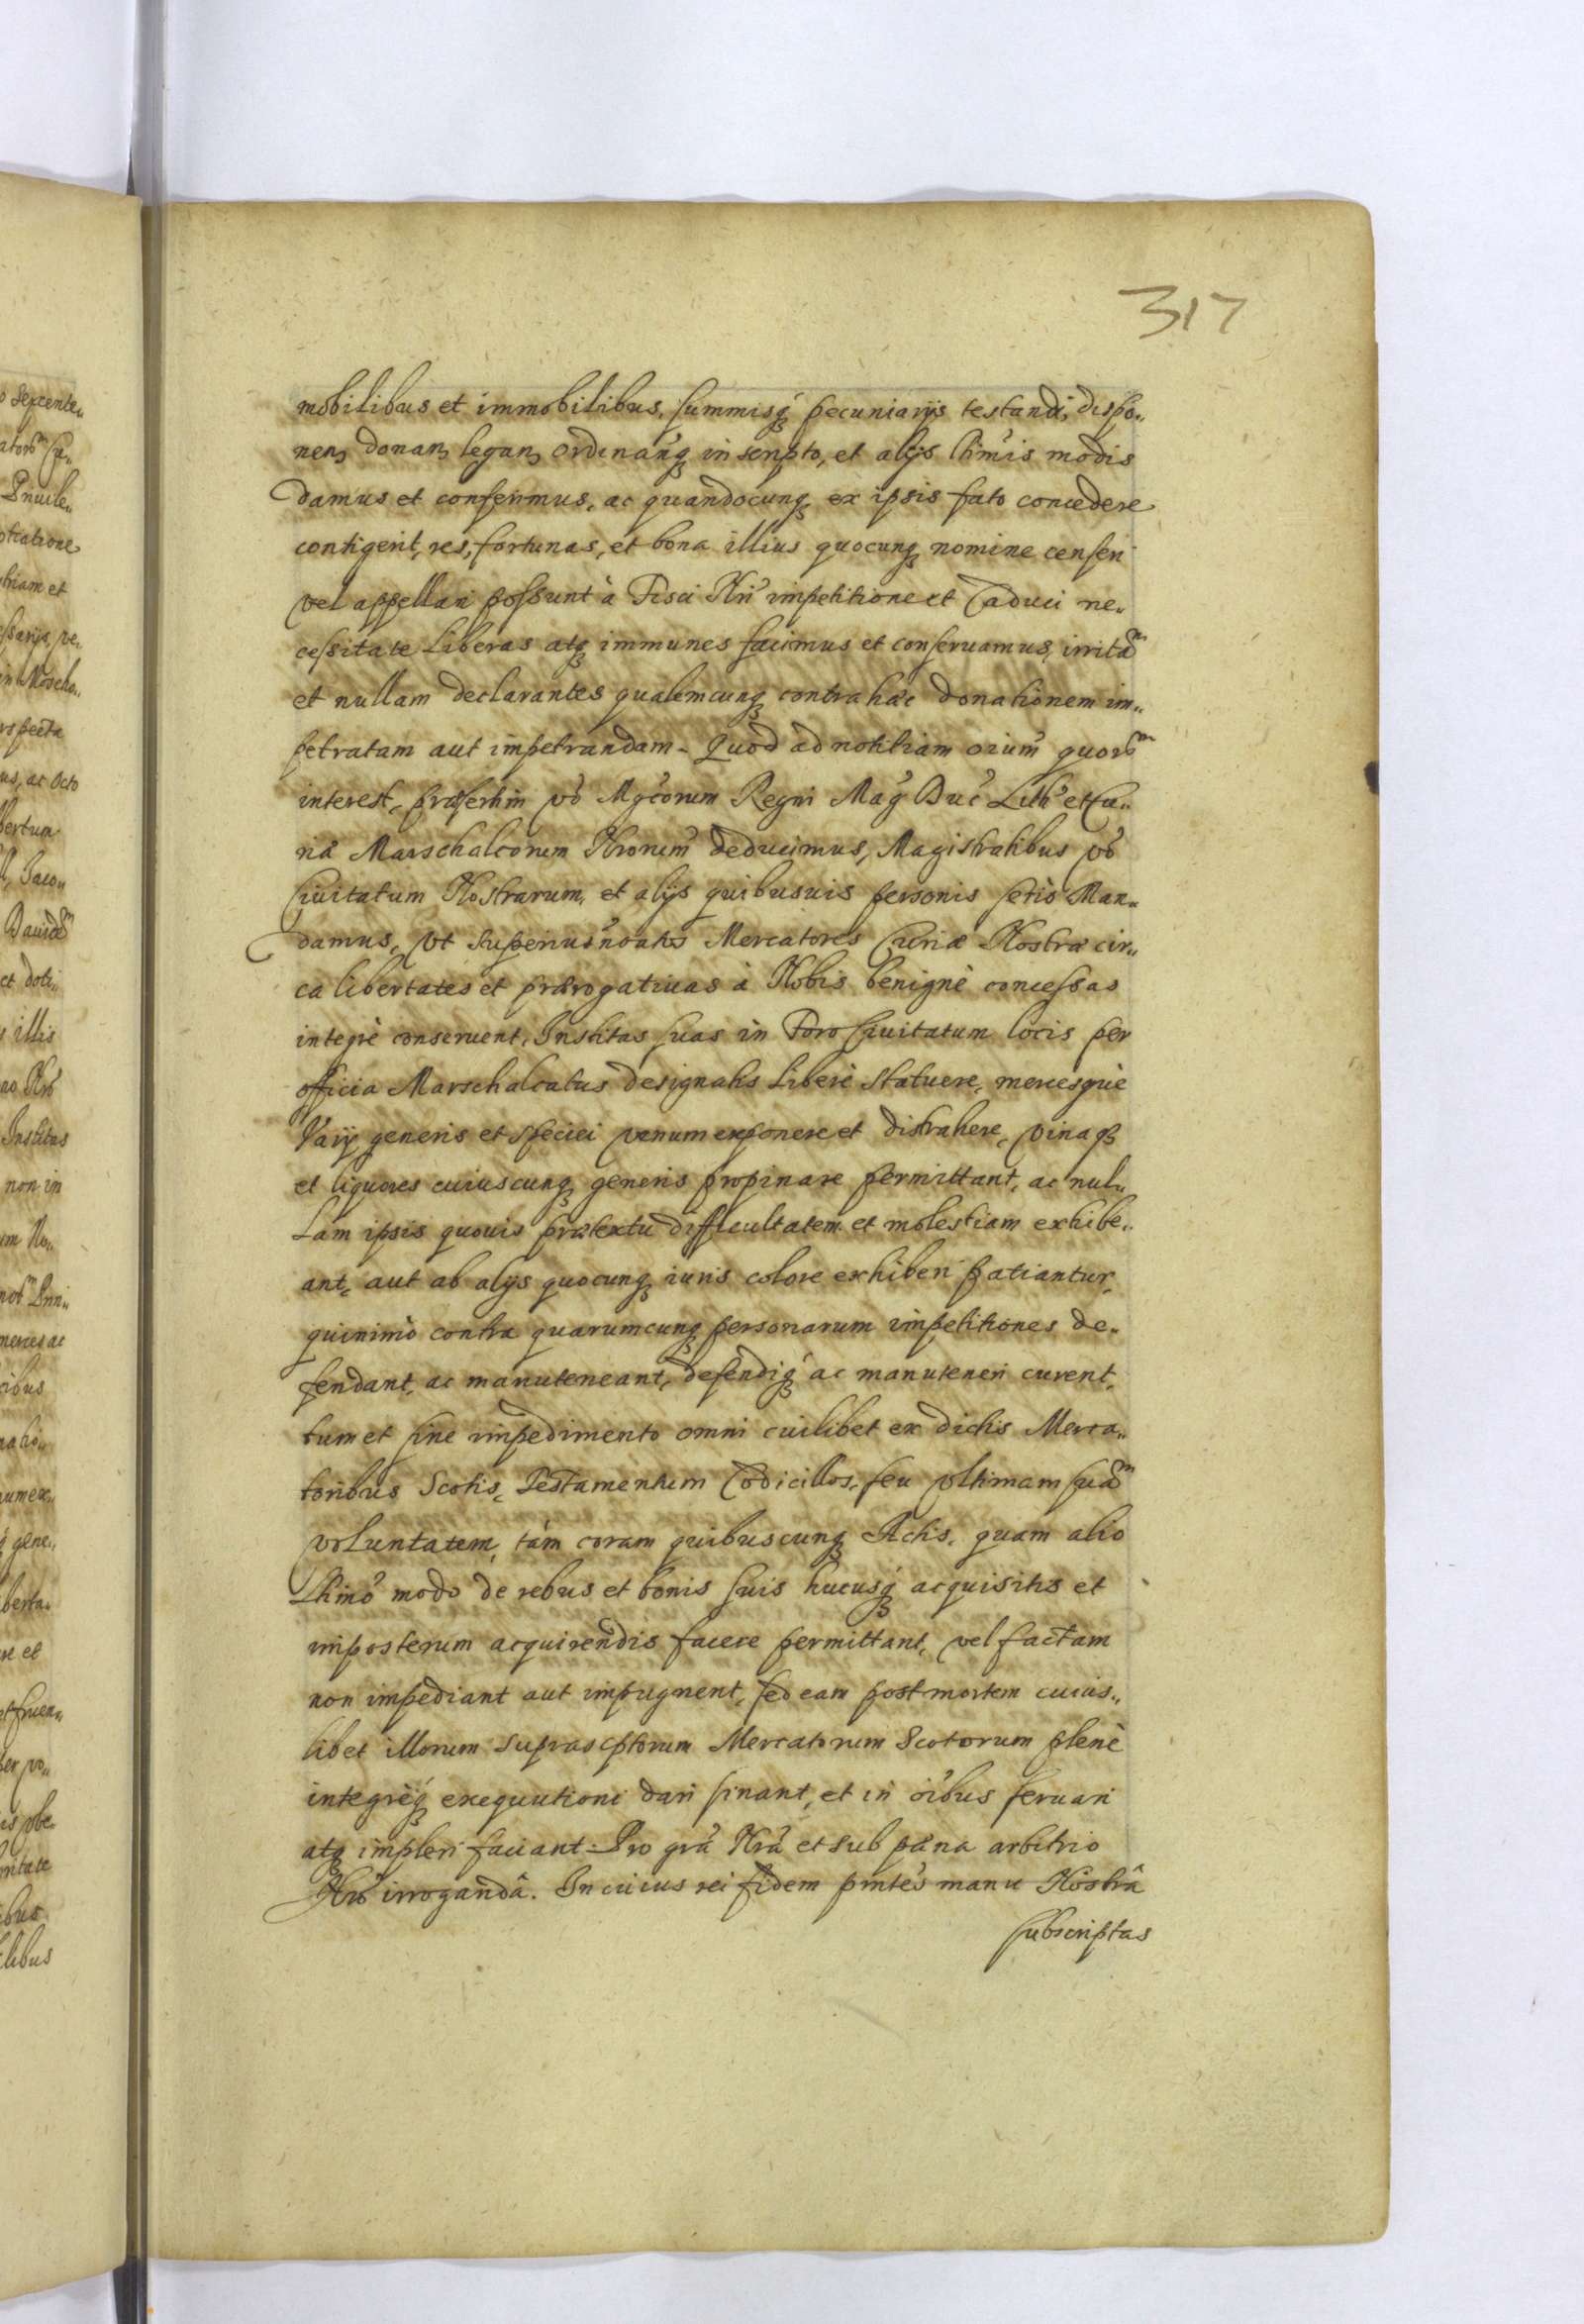 317
mobilibus et immobilibus, summisq́ꝫ pecuniarijs testandi, dispo„
nenꝫ donanꝫ leganꝫ ordinańqꝫ in scripto, et alijs ltimis modis
damus et conferimus, ac quandocunqꝫ ex ipsis fato concedere
contigerit, res, fortunas, et bona illius quocunqꝫ nomine censeri
vel appellari possunt à Fisci Nri impetitione et Caduci ne„
cessitate Liberas atqꝫ immunes facimus et conseruamus, irritam
et nullam declarantes qualemcunqꝫ contra hæc donationem im„
petratam aut impetrandam. Quod ad notitiam oium quorum
interest, præsertim vo Mgcorum Regni Mag Duc Lith et Cu„
riæ Marschalcorum Nrorum deducimus, Magistratibus vo
Ciuitatum Nostrarum, et alijs quibusuis personis serio Man„
damus, vt superius noatos Mercatores Curiæ Nostræ cir„
ca libertates et prærogatiuas à Nobis benignè concessas
integrè conseruent, Institas suas in Foro Ciuitatum locis per
officia Marschalcatus designatis Liberè statuere, mercesquè
Varij generis et speciei venum exponere et distrahere, vinaqꝫ
et liquores cuiuscunqꝫ generis propinare permittant, ac nul„
Lam ipsis quouis prætextu difficultatem et molestiam exhibe„
ant, aut ab alijs quocunqꝫ iuris colore exhiberi patiantur,
quinimò contra quarumcunqꝫ personarum impetitiones de„
fendant, ac manuteneant, defendiq́ꝫ ac manuteneri curent,
tum et sine impedimento omni cuilibet ex dictis Merca„
toribus Scotis, Testamentum Codicillos, seu vltimam suam
voluntatem, tám coram quibuscunqꝫ Actis, quam alio
Ltimo modo de rebus et bonis suis hucusq́ꝫ acquisitis et
imposterum acquirendis facere permittant, vel factam
non impediant aut impugnent, sed eam post mortem cuius„
libet illorum suprascptorum Mercatorum Scotorum plenè
integrèq́ꝫ exequutioni dari sinant, et in oibus seruari
atqꝫ impleri faciant. Pro gra Nra et sub pæna arbitrio
Nro irrogandâ. In cuius rei fidem pntes manu Nostrâ
subscriptas